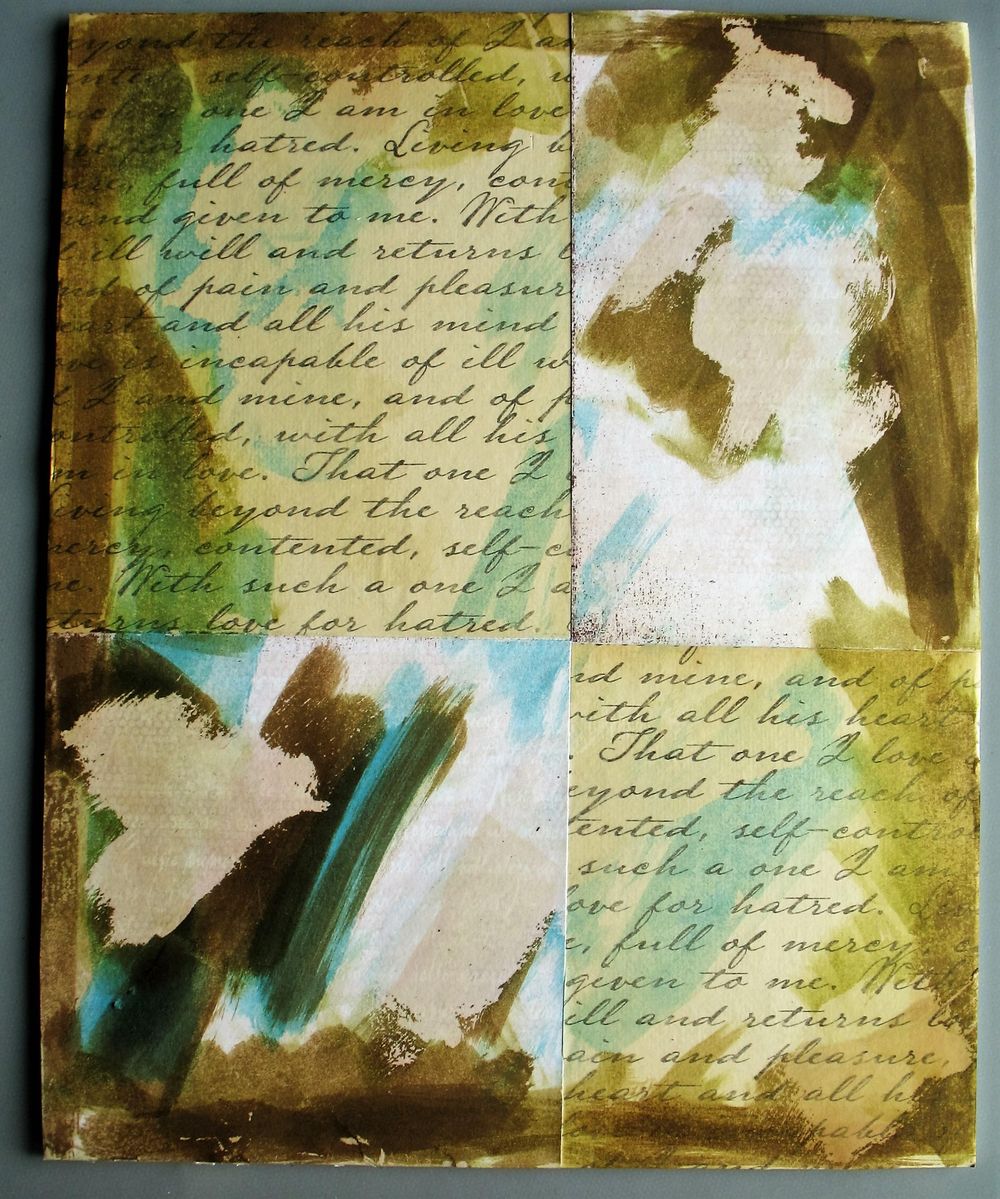 beyond the reach of I am
self-controlled,
one I am in love
for hatred. Living
full of mercy,
mind given to me. With
ill will and returns
of pain and pleasure
heart and all his mind
love is incapable of ill
I and mine, and of
controlled, with all his
am in love. That one I
Living beyond the reach
mercy, contented, self-
me. With such a one I
returns love for hatred.
and mine, and of
with all his heart
. That one I love
beyond the reach of
contented, self-control
such a one I am
love for hatred.
full of mercy,
given to me. With
ill and returns
pain and pleasure,
heart and all his